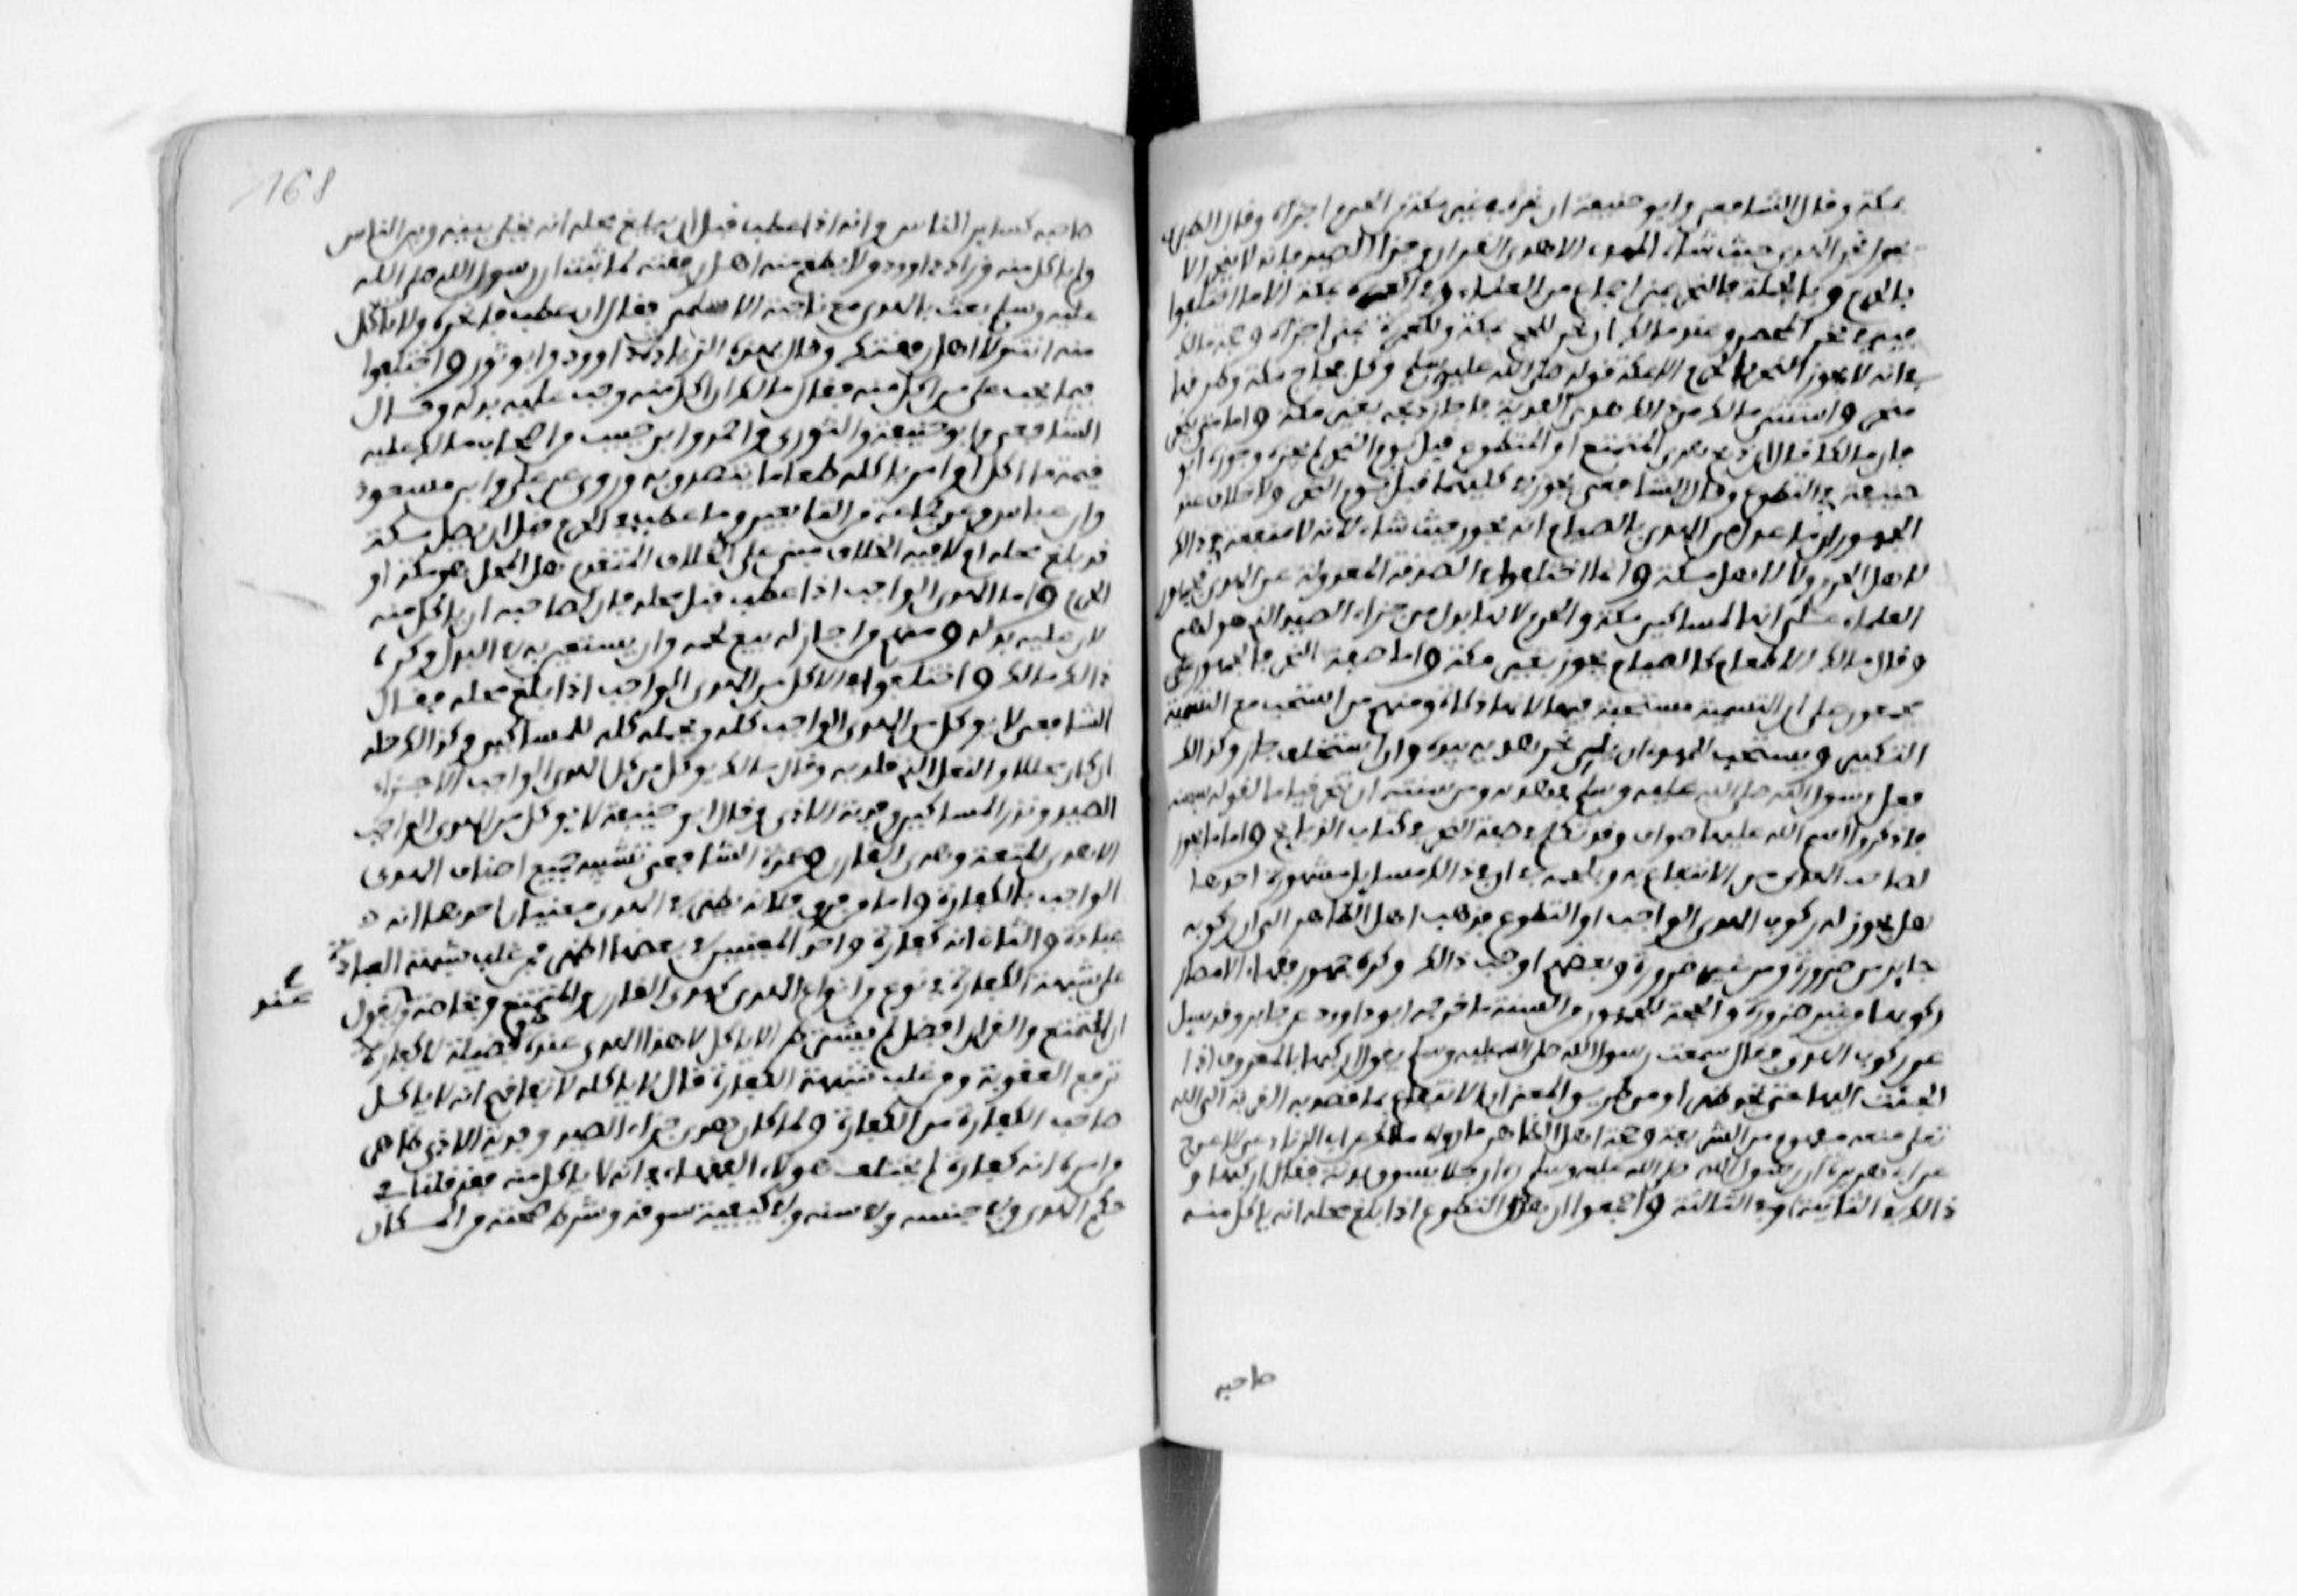 بمكة وقال الشافعي وابو حنيفة ان نحره بغير مكة من الحرم اجزاه وقال الطبري
يجوز نحر الهدي حيث شاء المهدي الا هدي القران وجزاء الصيد فانه لا ينحر الا
بالحرم وبالجملة فالنحر بمنى اجماع من العلماء وفي العمرة بمكة الا ما اختلفوا
فيه من نحر المحصر وعند مالك ان نحر للحج بمكة وللعمرة بمنى اجزاه وحجة مالك
في انه لا يجوز النحر بالحرم الا بمكة قوله صلى الله عليه وسلم وكل فجاج مكة وطرقها
منحر واستثنى مالك من ذلك هدي الفدية فاجاز ذبحه بغير مكة واما متى ينحر
فان مالكا قال ان ذبح هدي التمتع او التطوع قبل يوم النحر لم يجزه وجوزه ابو
حنيفة في التطوع وقال الشافعي يجوز في كليهما قبل يوم النحر ولا خلاف عند
الجمهور ان ما عدل من الهدي بالصيام انه يجوز حيث شاء لانه لا منفعة في ذالك
لا هل الحرم ولا لاهل مكة وانما اختلفوا في الصدقة المعدولة عن الهدي فجمهور
العلماء على انها لمساكين مكة والحرم لانها بدل من جزاء الصيد الذي هو لهم
وقال مالك الاطعام كالصيام يجوز بغير مكة واما صفة النحر فالجمهور على
مجمعون على ان التسمية مستحبة فيها لانها ذكاة ومنهم من استحب مع التسمية
التكبير ويستحب للمهدي ان يلي نحر هديه بيده وان استخلف جاز وكذالك
فعل رسول الله صلى الله عليه وسلم في هديه ومن سنتها ان تنحر قياما لقوله سبحنه
فاذكروا اسم الله عليها صواف وقد تكلم في صفة النحر في كتاب الذبايح واما ما يجوز
لصاحب الهدي من الانتفاع به وبلحمه فان في ذالك مسايل مشهورة احدها
هل يجوز له ركوب الهدي الواجب او التطوع فذهب اهل الظاهر الى ان ركوبه
جايز من ضرورة ومن غير ضرورة وبعضهم اوجب ذالك وكره جمهور فقهاء الامصار
ركوبها من غير ضرورة والحجة للجمهور من السنة ما خرجه ابو داوود عن جابر وقد سيل
عن ركوب الهدي فقال سمعت رسول الله صلى الله عليه وسلم يقول اركبها بالمعروف اذا
الجئت اليها حتى تجد ظهرا ومن طريق المعنى ان الانتفاع بما قصد به القربة الى الله
تعلى منعه مفهوم من الشريعة وحجة اهل الظاهر ما رواه مالك عن ابي الزناد عن الاعرج
عن ابي هريرة ان رسول الله صلى الله عليه وسلم راى رجلا يسوق بدنة فقال اركبها و
ذالك في الثانية او في الثالثة واجمعوا ان هدي التطوع اذا بلغ محله انه ياكل منه
صاحبه
168
صاحبه كساير الناس وانه اذا عطب قبل ان يبلغ محله انه يخلى بينه وبين الناس
ولم ياكل منه وزاد داوود ولا يطعم منه اهل رفقته لما ثبت ان رسول الله صلى الله
عليه وسلم بعث بالهدي مع ناجية الاسلمي فقال ان عطب فانحره ولا تاكل
منه انت ولا اهل رفقتك وقال بهذه الزيادة داوود وابو ثور واختلفوا
فيما يجب على من اكل منه فقال مالك ان اكل منه وجب عليه بدله وقال
الشافعي وابو حنيفة والثوري واحمد وابن حبيب من اصحاب مالك عليه
قيمة ما اكل او امر باكله طعاما يتصدق به وروي عن علي وابن مسعود
وابن عباس وعن جماعة من التابعين وما عطب في الحرم قبل ان يصل مكة
قد بلغ محله ام لا فيه الخلاف مبني على الخلاف المتقدم هل المحل هو مكة او
الحرم واما الهدي الواجب اذا عطب قبل محله فان لصاحبه ان ياكل منه
لان عليه بدله ومنهم من اجاز له بيع لحمه وان يستعين به في البدل وكره
ذالك مالك واختلفوا في الاكل من الهدي الواجب اذا بلغ محله فقال
الشافعي لا يوكل من الهدي الواجب كله ولحمه كله للمساكين وكذالك جله
ان كان مجللا والنعل الذي قلد به وقال مالك يوكل من كل الهدي الواجب الا جزاء
الصيد ونذر المساكين وفدية الاذى وقال ابو حنيفة لا يوكل من الهدي الواجب
الا هدي المتعة وهدي القران وعمدة الشافعي تشبيه جميع اصناف الهدي
الواجب بالكفارة واما من فرق فلانه يظهر في الهدي معنيان احدهما انه
عبادة والثاني انه كفارة واحد المعنيين في بعضها اظهر فمن غلب شبهه بالعبادة
على شبهه بالكفارة في نوع من انواع الهدي كهدي القران والتمتع وبخاصة من يقول
عند
ان التمتع والقران افضل لم يشترط الا ياكل لان هذا الهدي عنده هو فضيلة لا كفارة
ترفع العقوبة ومن غلب شبهه بالكفارة قال لا ياكله لاتفاقهم انه لا ياكل
صاحب الكفارة من الكفارة ولما كان هدي جزاء الصيد وفدية الاذى ظاهر
من امره انه كفارة لم يختلف هولاء الفقهاء في انه لا ياكل منه فقد قلنا في
حكم الهدي وفي جنسه وفي سنه وفي كيفية سوقه وشروط صحته من المكان